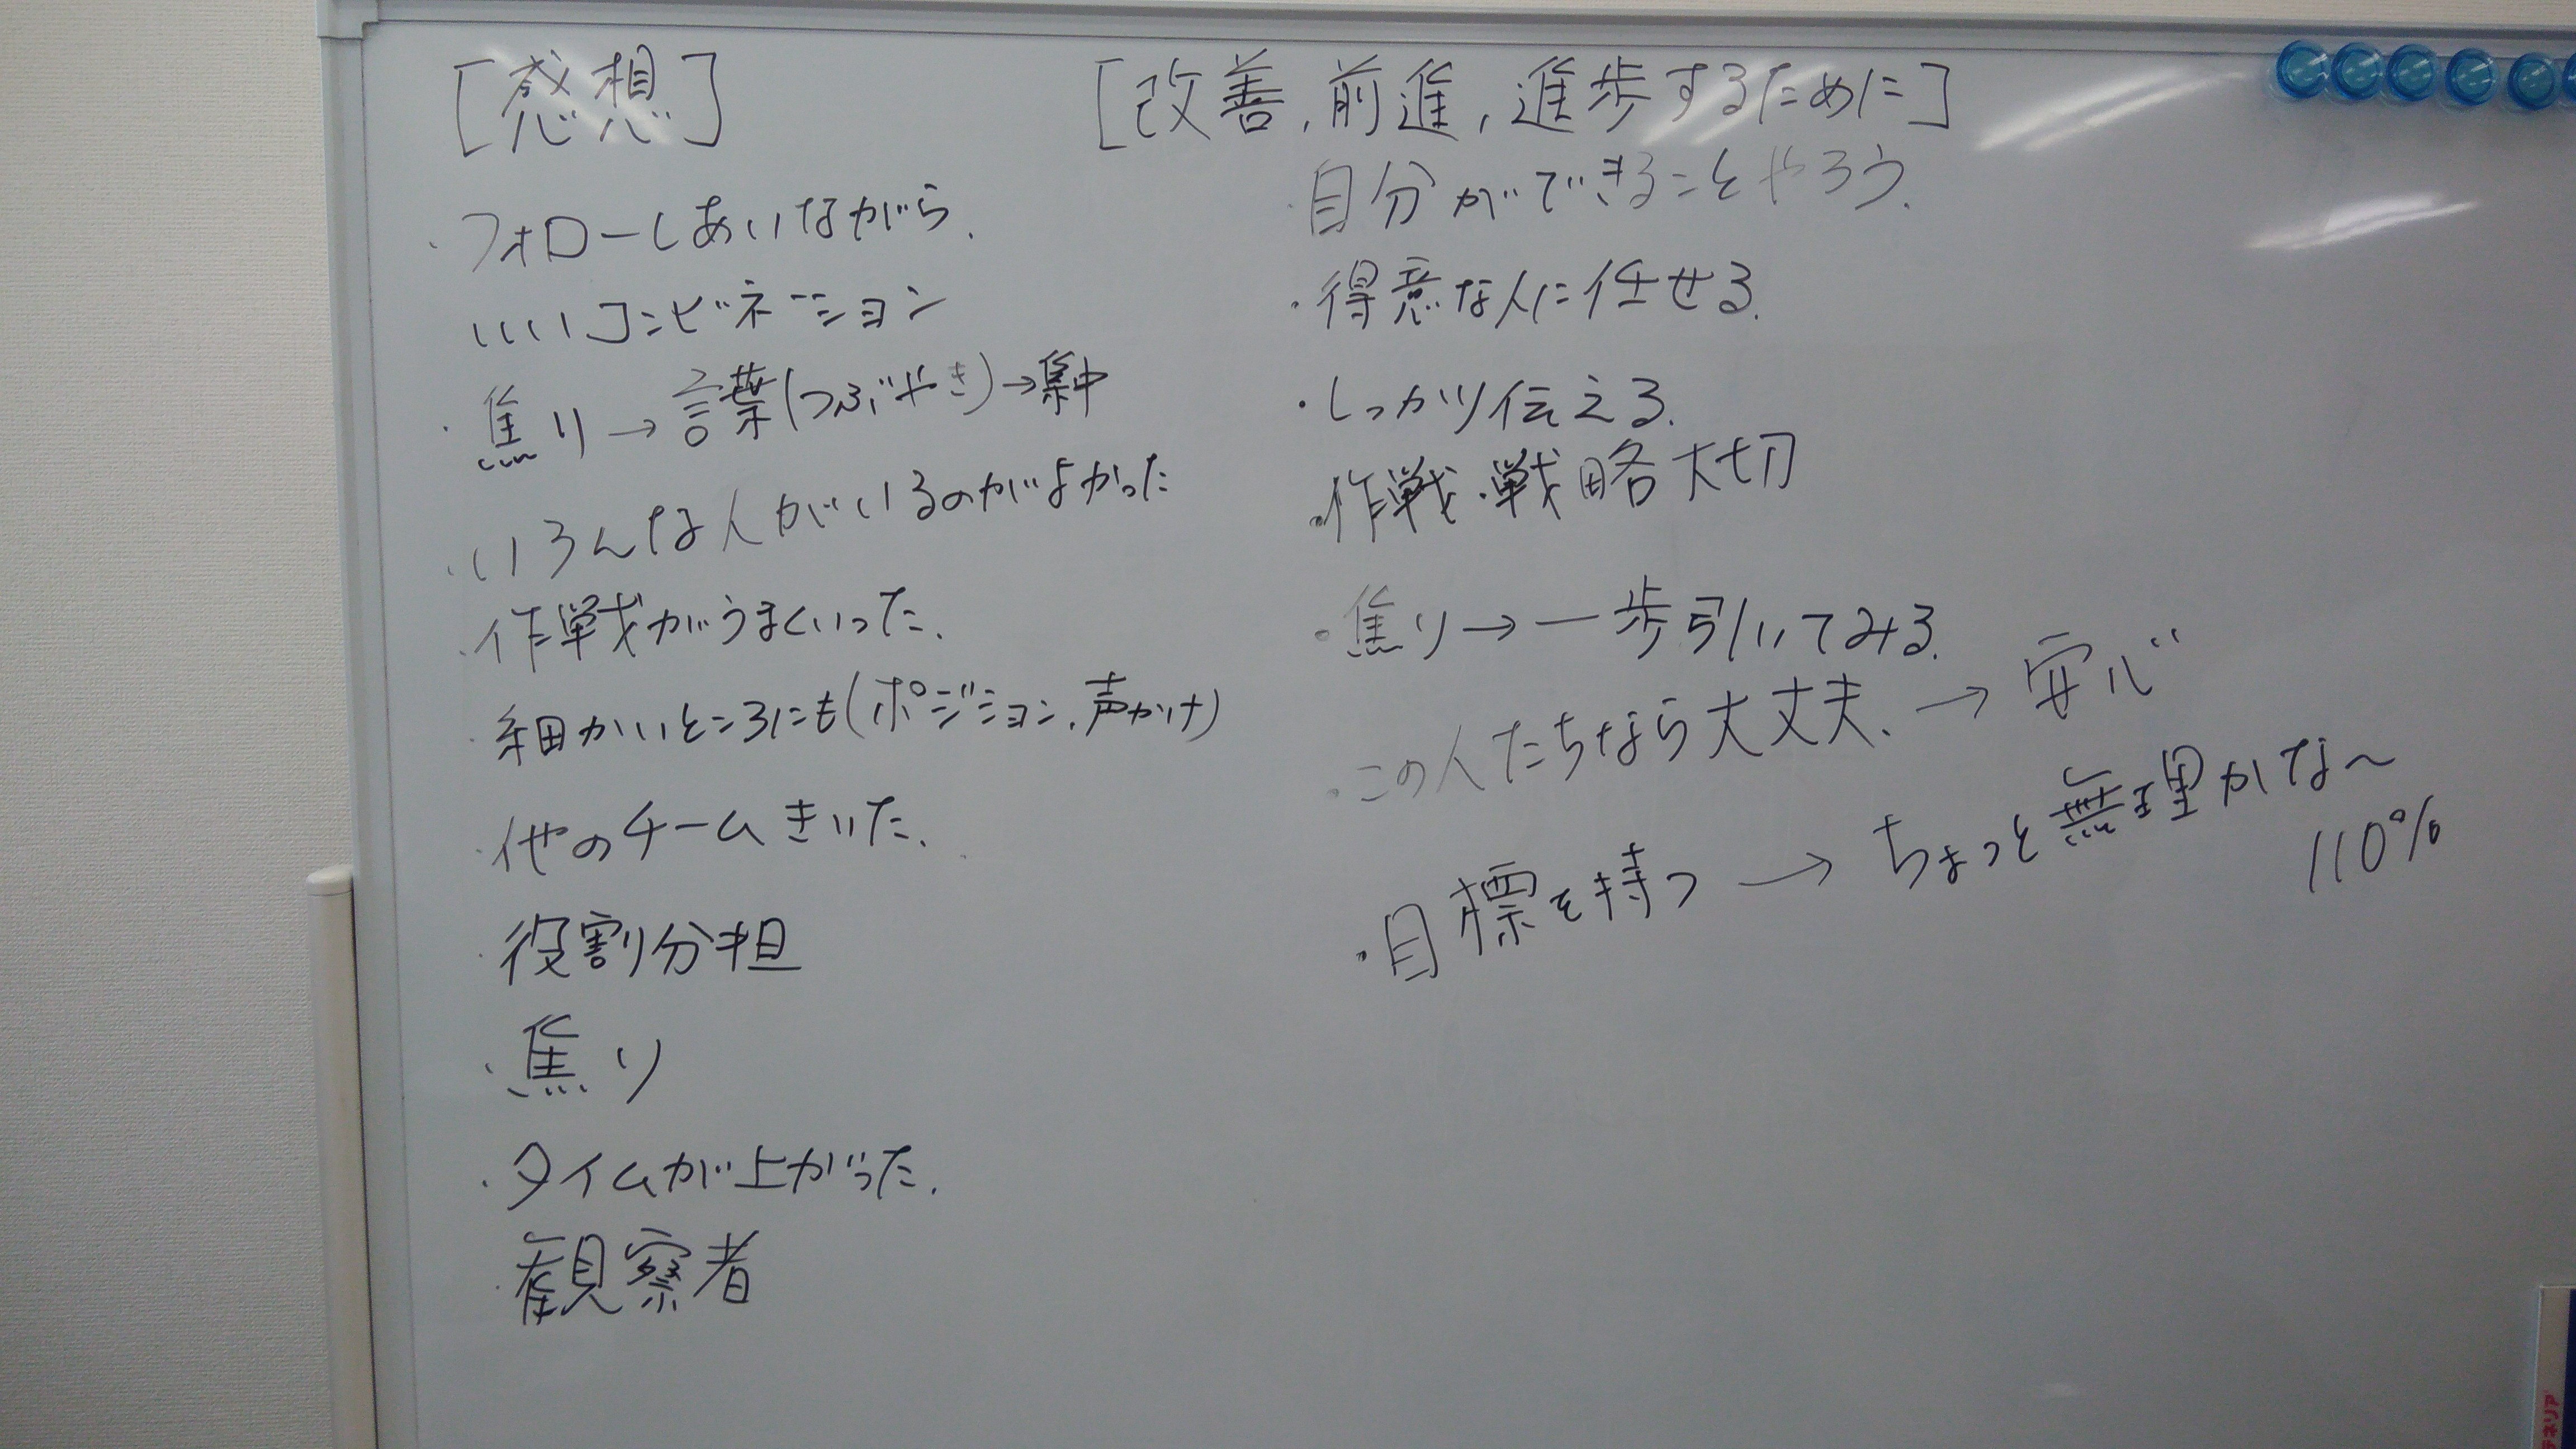 [感想]
・フォローしあいながら.
いいコンビネーション
・焦り→言葉(つぶやき)→集中
・いろんな人がいるのがよかった
・作戦がうまくいった.
・細かいところにも(ポジション,声かけ)
・他のチームきいた.
・役割分担
・焦り
・タイムが上がった.
・観察者
[改善,前進,進歩するために]
・自分ができることやろう.
・得意な人に任せる.
・しっかり伝える.
・作戦・戦略大切
・焦り→一歩引いてみる.
・この人たちなら大丈夫.→安心
・目標を持つ→ちょっと無理かな〜
110%
ネリア